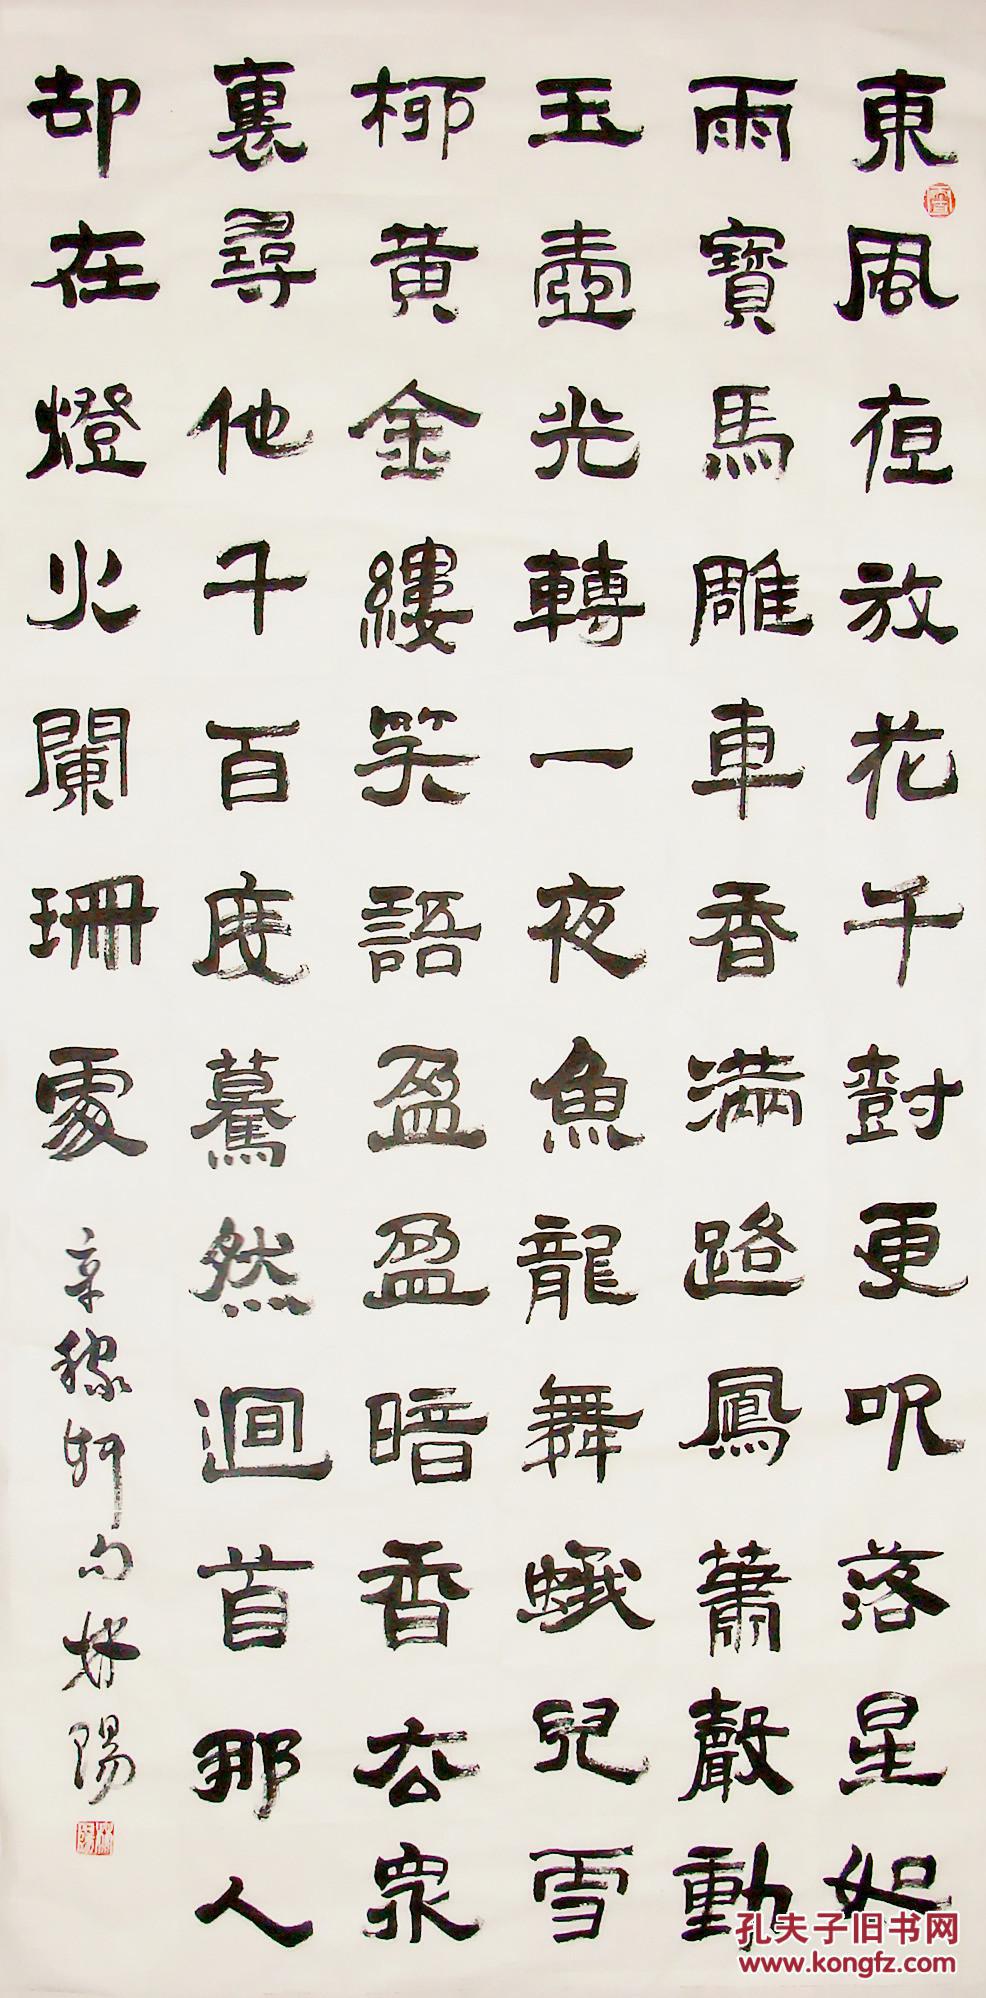 東風夜放花千尌更吹落星如
雨寶馬雕車香滿路鳳簫聲動
玉壺光轉一夜魚龍舞蛾兒雪
柳黃金縷笑語盈盈暗香去眾
裏尋他千百度驀然迴首那人
却在燈火闌珊處
辛稼軒句林陽
孔夫子旧书网
www.kongfz.com